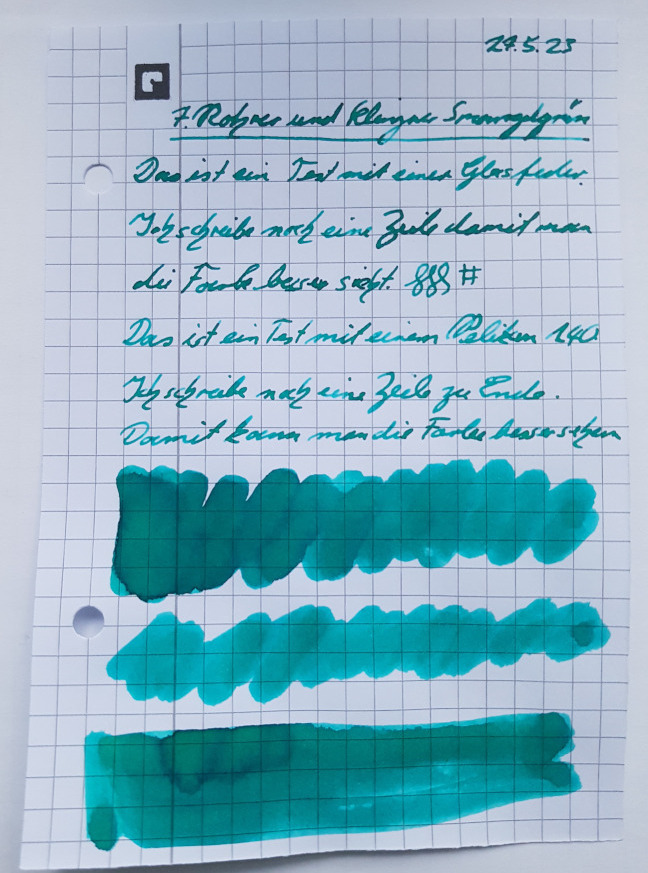 24.5.23
7. Rohrer und Klingner Smaragdgrün
Das ist ein Test mit einer Glasfeder.
Ich schreibe noch eine Zeile damit man
die Farbe besser sieht. §§§ #
Das ist ein Test mit einem Pelikan 140
Ich schreibe noch eine Zeile zu Ende.
Damit kann man die Farbe besser sehen